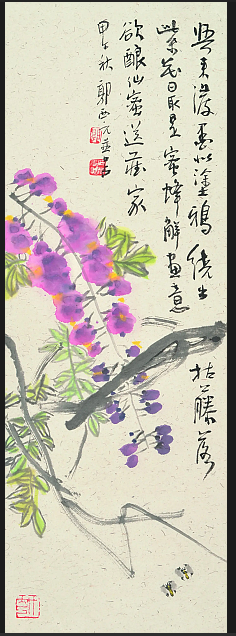 興來潑墨似塗鴉繞出枯藤落
紫花最是蜜蜂解画意
欲釀仙蜜送家
甲午秋郭西元並書